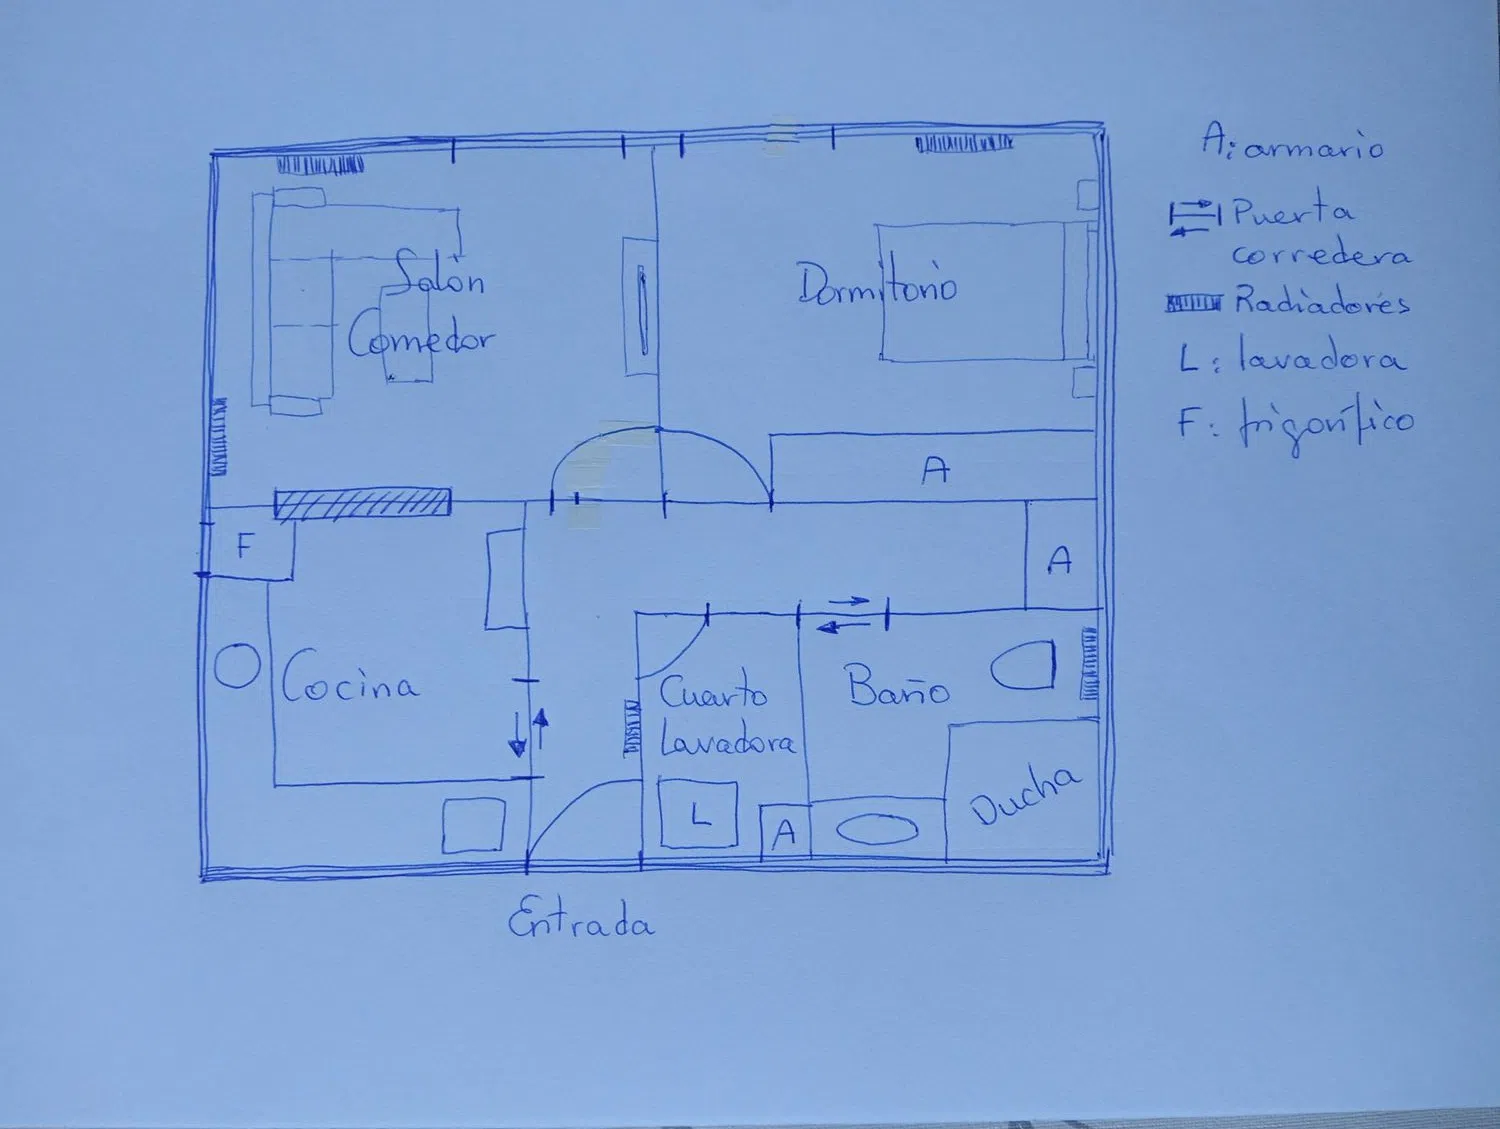 A: armario
Puerta
corredera
Radiadores
L: lavadora
F: frigorífico
Salón
Comedor
Dormitorio
A
F
A
Cocina
Cuarto
Lavadora
Baño
L
A
Ducha
Entrada